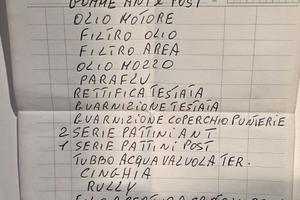 GOMME ANT E POST
OLIO MOTORE
FILTRO OLIO
FILTRO AREA
OLIO MOZZO
PARAFLU
RETTIFICA TESTATA
GUARNIZIONE TESTATA
GUARNIZIONE COPERCHIO PUNTERIE
2 SERIE PATTINI ANT
1 SERIE PATTINI POST
TUBBO ACQUA VALVOLA TER.
CINGHIA
RULLY